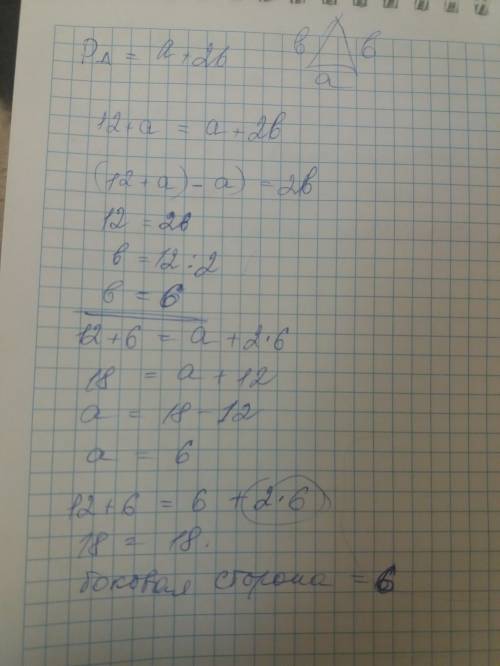 P△ = a + 2в
в в
a
12 + a = a + 2в
(12 + a) - a) = 2в
12 = 2в
в = 12 : 2
в = 6
12 + 6 = a + 2 · 6
18 = a + 12
a = 18 - 12
a = 6
12 + 6 = 6 + (2 · 6)
18 = 18.
боковая сторона = 6